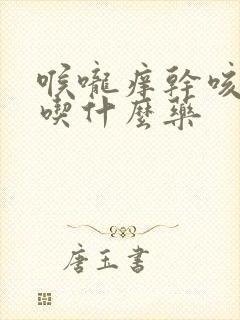 喉嚨痒幹咳
喫什麼藥
唐玉書